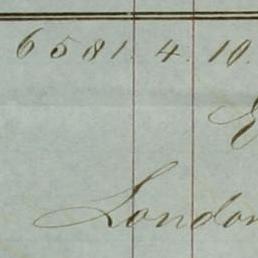 6581. 4. 10.
London